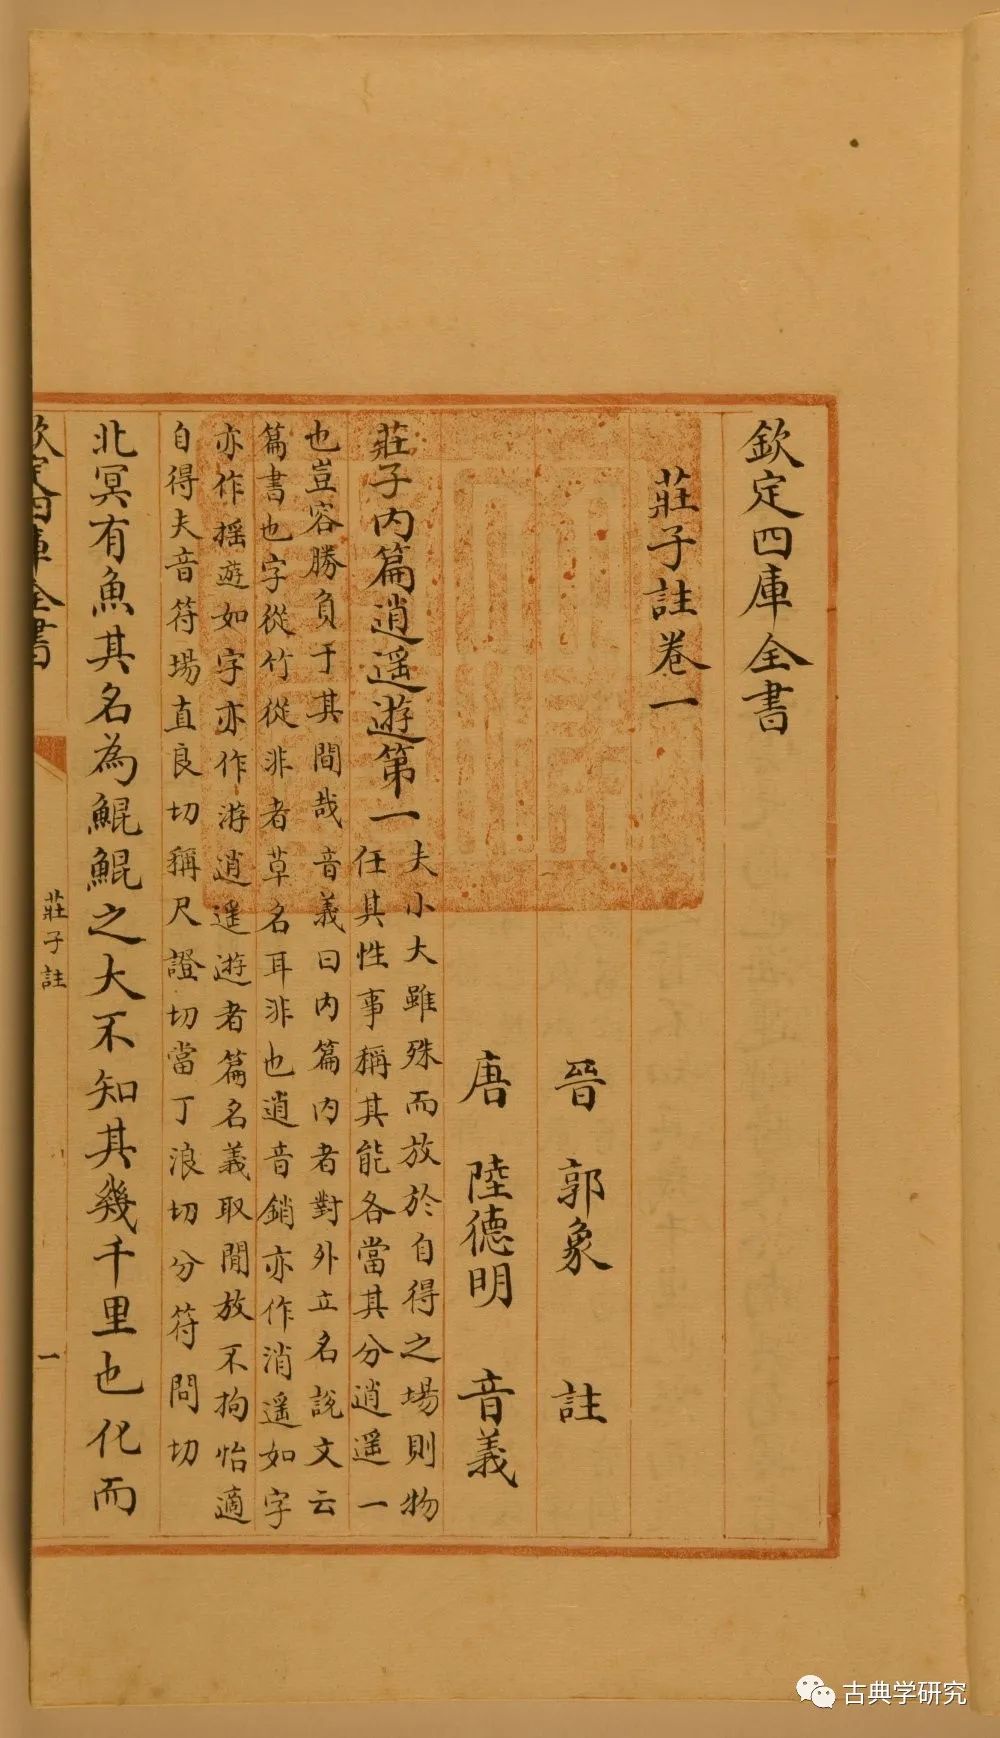 欽定四庫全書
莊子註卷一
晉 郭象 註
唐 陸德明 音義
莊子内篇逍遥遊第一
夫小大雖殊而放於自得之場則物
任其性事稱其能各當其分逍遥一
也豈容勝負于其間哉音義曰内篇内者對外立名說文云
篇書也字從竹從非者草名耳非也逍音銷亦作消遥如字
亦作摇遊如字亦作游逍遥遊者篇名義取閒放不拘怡適
自得夫音符場直良切稱尺證切當丁浪切分符問切
北冥有魚其名為鯤鯤之大不知其幾千里也化而
欽定四庫全書
莊子註
一
古典学研究